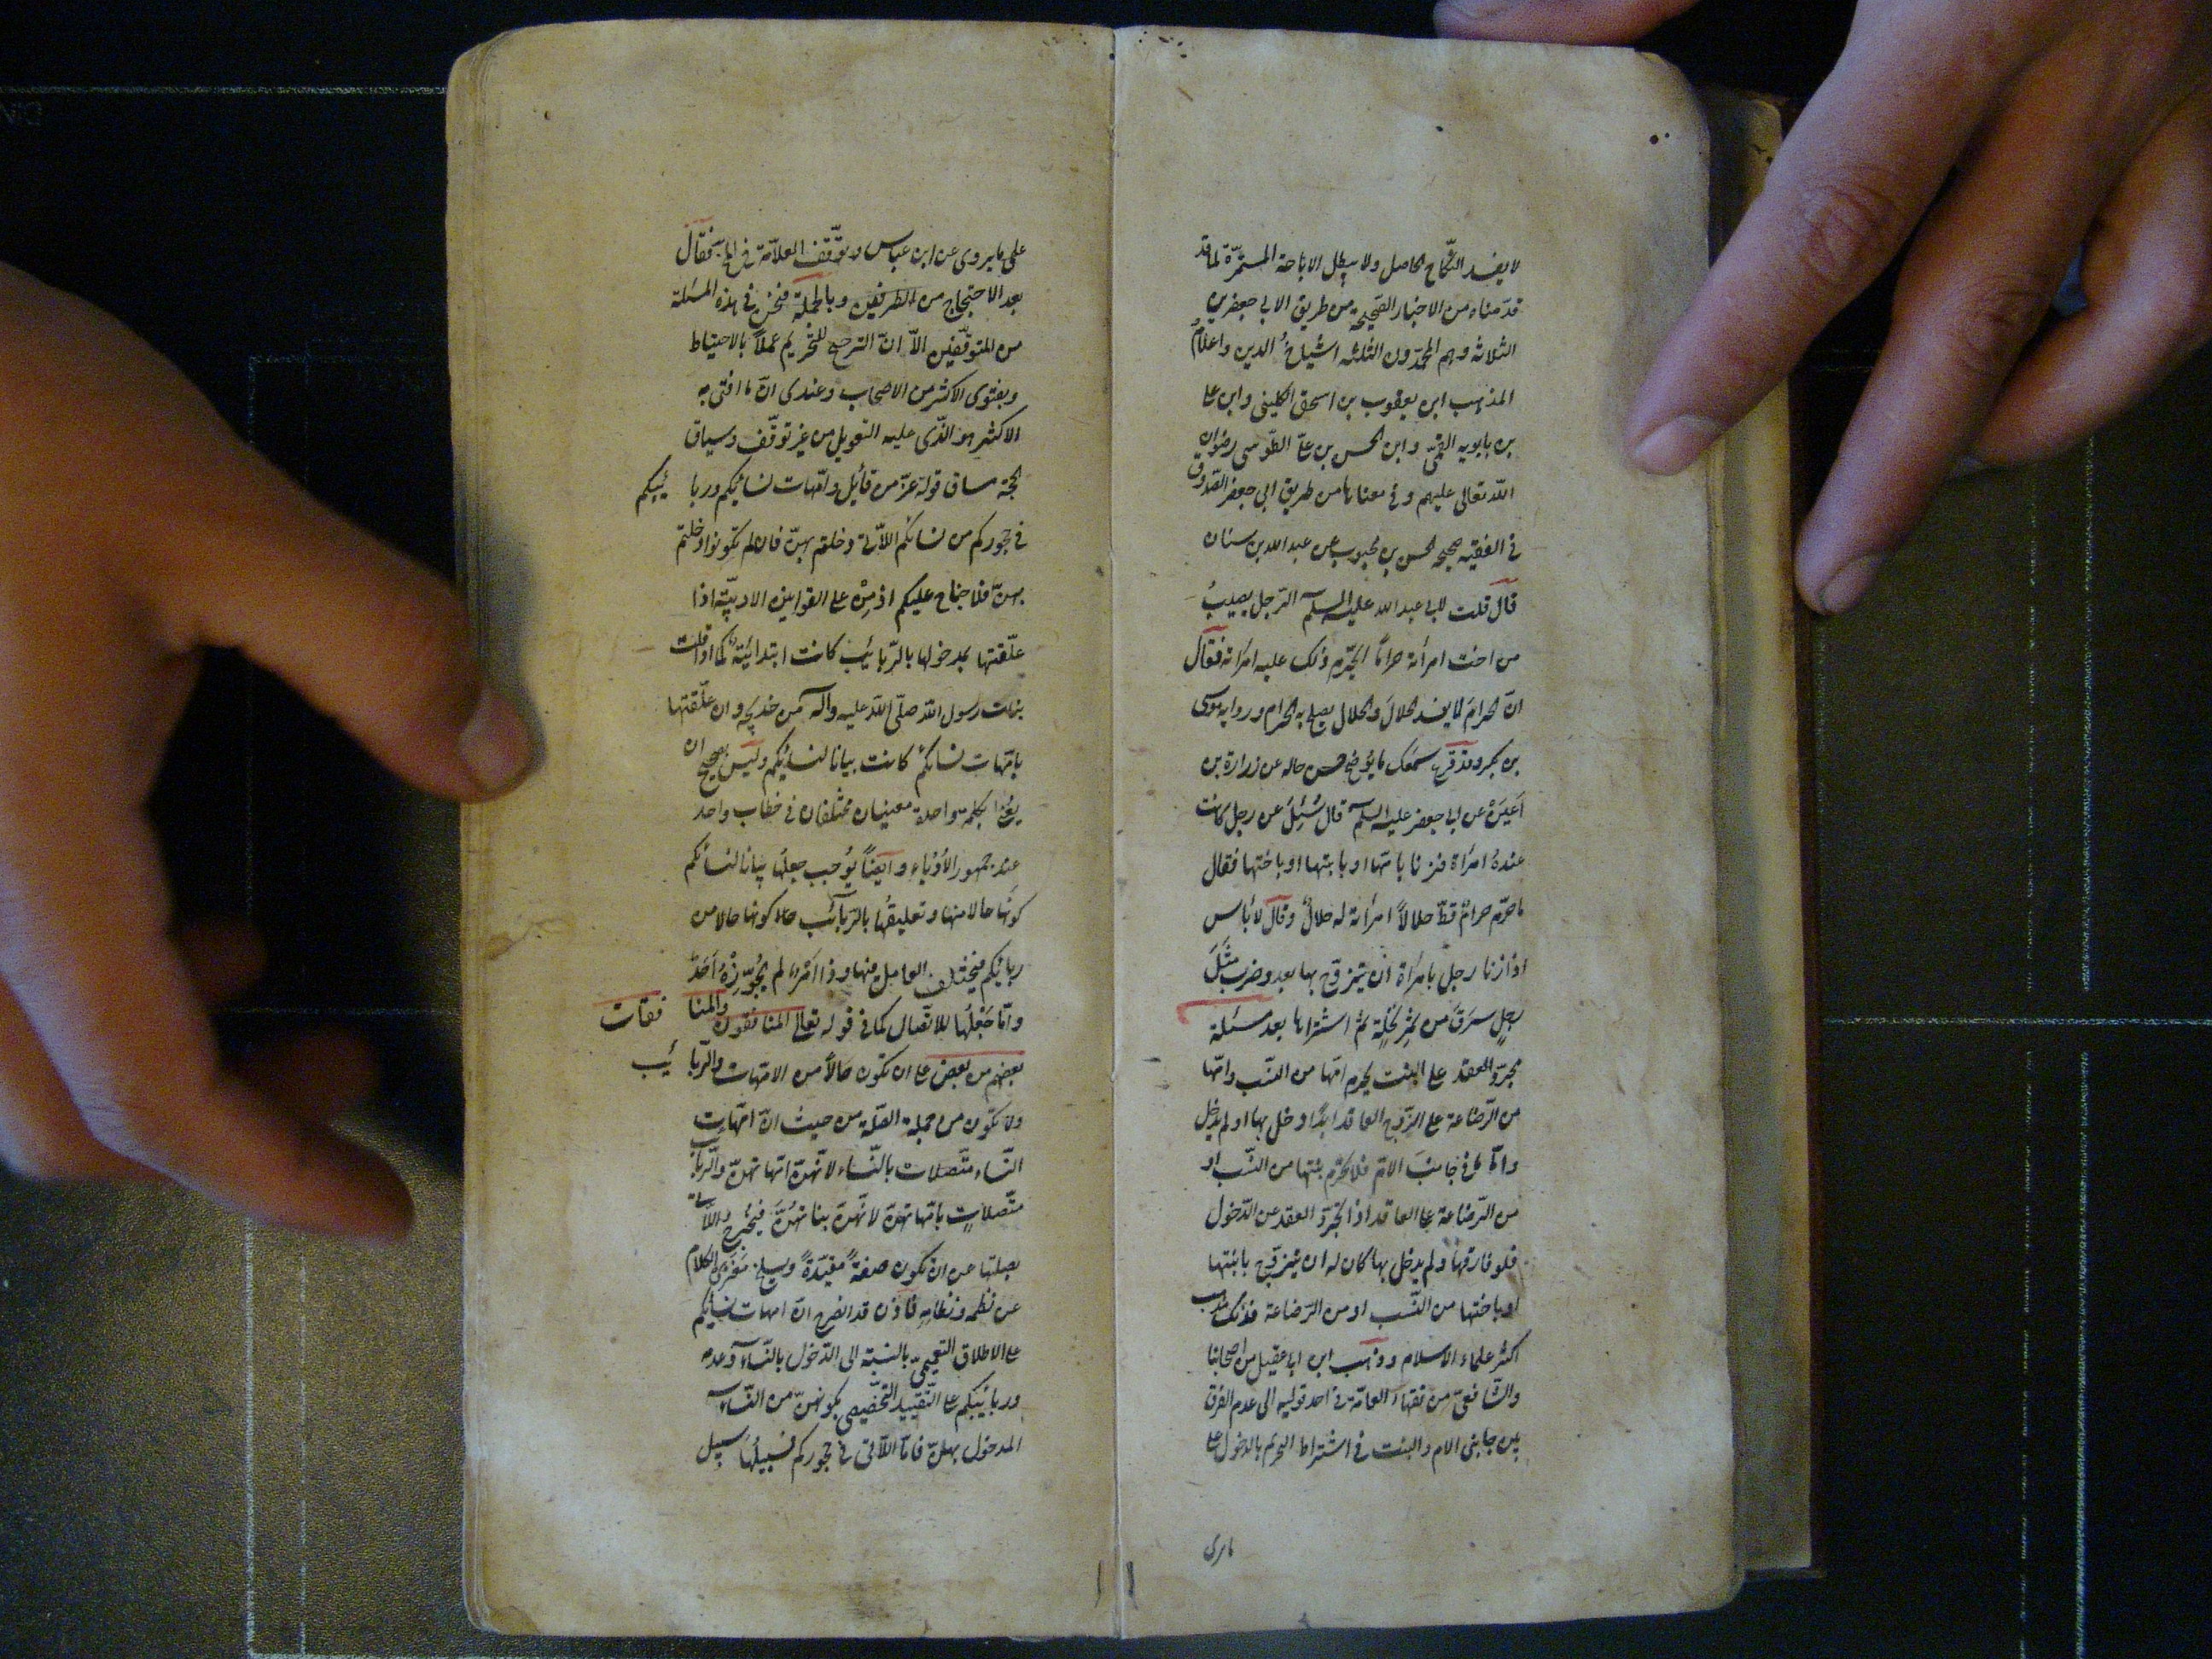 لا يفسد النّكاح الحاصل ولا يبطل الاباحة المستمرّة لما قد
قدّمناه من الاخبار الصّحيحة من طريق الابى جعفرين
الثلاثة وهم المحمّدون الثلثه اشياخُ الدين واعلام
المذهب ابن يعقوب بن اسحق الكلينى وابن على
بن بابويه القمّى وابن الحسن بن علىّ الطّوسى رضوان
اللّه تعالى عليهم وفى معناها من طريق ابى جعفر الصّدوق
فى الفقيه صحيحه الحسن بن محبوب عن عبد الله بن سنان
قال قلت لابى عبد الله عليه السلم الرّجل يصيبُ
من اخت امرأته حراماً ايحرّم ذلك عليه امرأته فقال
انّ الحرامَ لا يفسد الحلالَ والحلال يصلح به الحرام ورواية موسى
بن بكر وقد قرع سمعك ما يوضح حسن حاله عن زرارة بن
اَعيَنْ عن ابى جعفر عليه السلم قال سُئِلَ عن رجل كانت
عندهُ امرأة فزنا بامّها او بابنتها او باختها فقال
ما حرّم حرامٌ قطّ حلالاً امرأته له حلالٌ وقال لا بأس
اذا زنا رجل بامرأة ان يتزوّج بها بعد وضرب مَثَلَ
رجلٍ سَرَقَ من ثمر نخلةٍ ثم اشتراها بعد مسئلة
مجرّد العقد على البنت يحرم امّها من النّسب وامّها
من الرّضاعة على الزّوج العاقد ابدًا دخل بها او لم يدخل
وامّا فى جانبَ الامّ فلا تحرّم بنتها من النّسب او
من الرّضاعة على العاقد اذا تجرّد العقد عن الدّخول
فلو فارقها ولم يدخل بها كان له ان يتزوّج بابنتها
او باختها من النّسب او من الرّضاعة فذلك مذهب
اكثر علماء الاسلام وذهب ابن ابى عقيل من اصحابنا
والشّافعىّ من فقهاء العامّة فى احد قوليه الى عدم الفرق
بين جانبى الام والبنت فى اشتراط التحريم بالدخول على
على ما يروى عن ابن عباس وتوقّف العلاّمة فى فقال
بعد الاحتجاج من الطرفين وبالجملة فنحن فى هذه المسئلة
من المتوقّفين الاّ انّ الترجيح للتّحريم عملاً بالاحتياط
وبفتوى الاكثر من الاصحاب وعندى انّ ما افتى به
الاكثر هو الذّى عليه التعويل من غير توقّف وسياق
الحجّة مساق قوله عزّ من قائل وامّهات نسائكم وربائبكم
فى حجوركم من نسائكم اللاّتى دخلتم بهنّ فان لم تكونوا دخلتم
بهنّ فلا جناح عليكم اذ مِنْ على القوانين الادبيّة اذا
علّقتها بالرّبائب كانت ابتدائيّة كما اذا قلت
بنات رسول اللّه صلّى اللّه عليه وآله من خديجة وان علّقتها
بامّهات نسائكم كانت بيانا لنسائكم وليس يصحّ ان
بكلمة واحدة معنيان مختلفان فى خطاب واحد
عند جمهور الأدباء وايضاً يُوجب جعلُها بيانا لنسائكم
كونَها حالا منها وتعليقُها بالرّبائب كونها حالا من
ربائبكم فيختلف العامل فيها وذا امرٌ لم يُجوّزهُ اَحَدٌ
وامّا جَعْلُها للاتّصال كما فى قوله تعالى المنافقون والمنافقات
بعضهم من بعض على ان تكون حالاً من الامّهات والرّبائب
ولا تكون من جملة الصّلة من حيث انّ امّهات
النّساء متّصلات بالنّساء لانّهنّ امّهاتهنّ والرّبائب
متّصلاتٍ بامّهاتهنّ لانّهنّ بناتهُنّ فيُخرج اللّاتى
بصلتها عن ان تكون صفةً مقيّدةً ويسلخ مغزى الكلام
عن نظمه ونظامه فاذن قد اتّضح انّ امهات نسائكم
على الاطلاق التعميمىّ بالنسبة الى الدّخول بالنّساء وعدمه
وربائبكم على التّقييد التّخصيصى بكونهنّ من النّساء
المدخول بهنّ فامّا اللّاتى فى حجوركم فسبيلُها سبيل